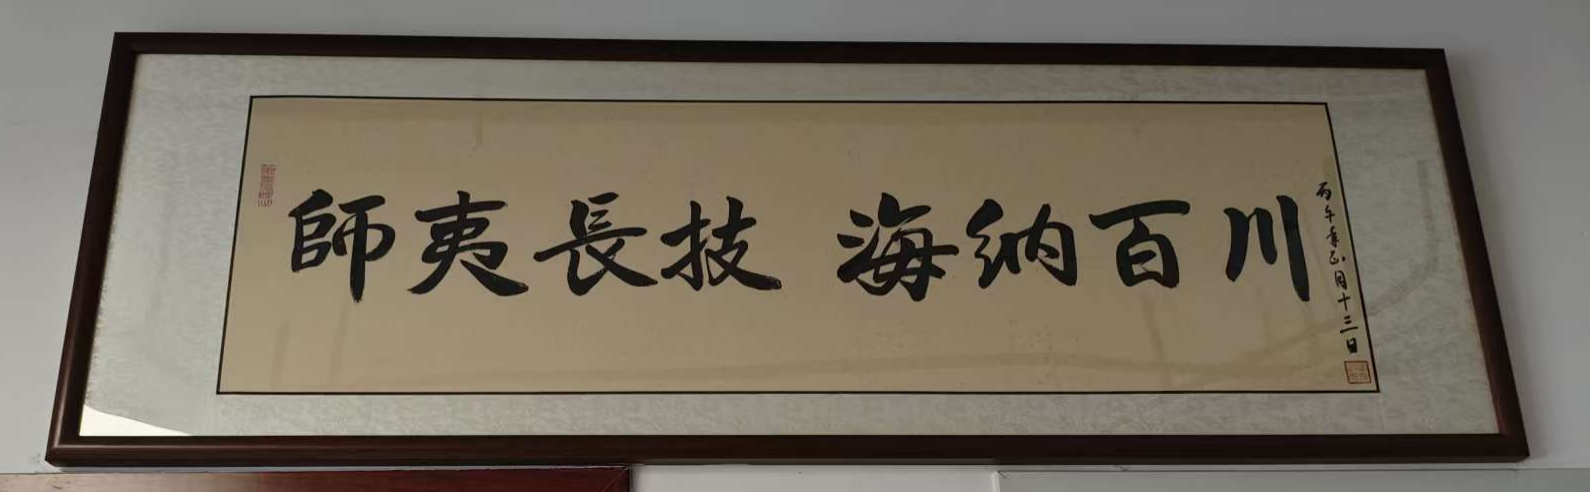 師夷長技 海納百川
丙午年正月十三日